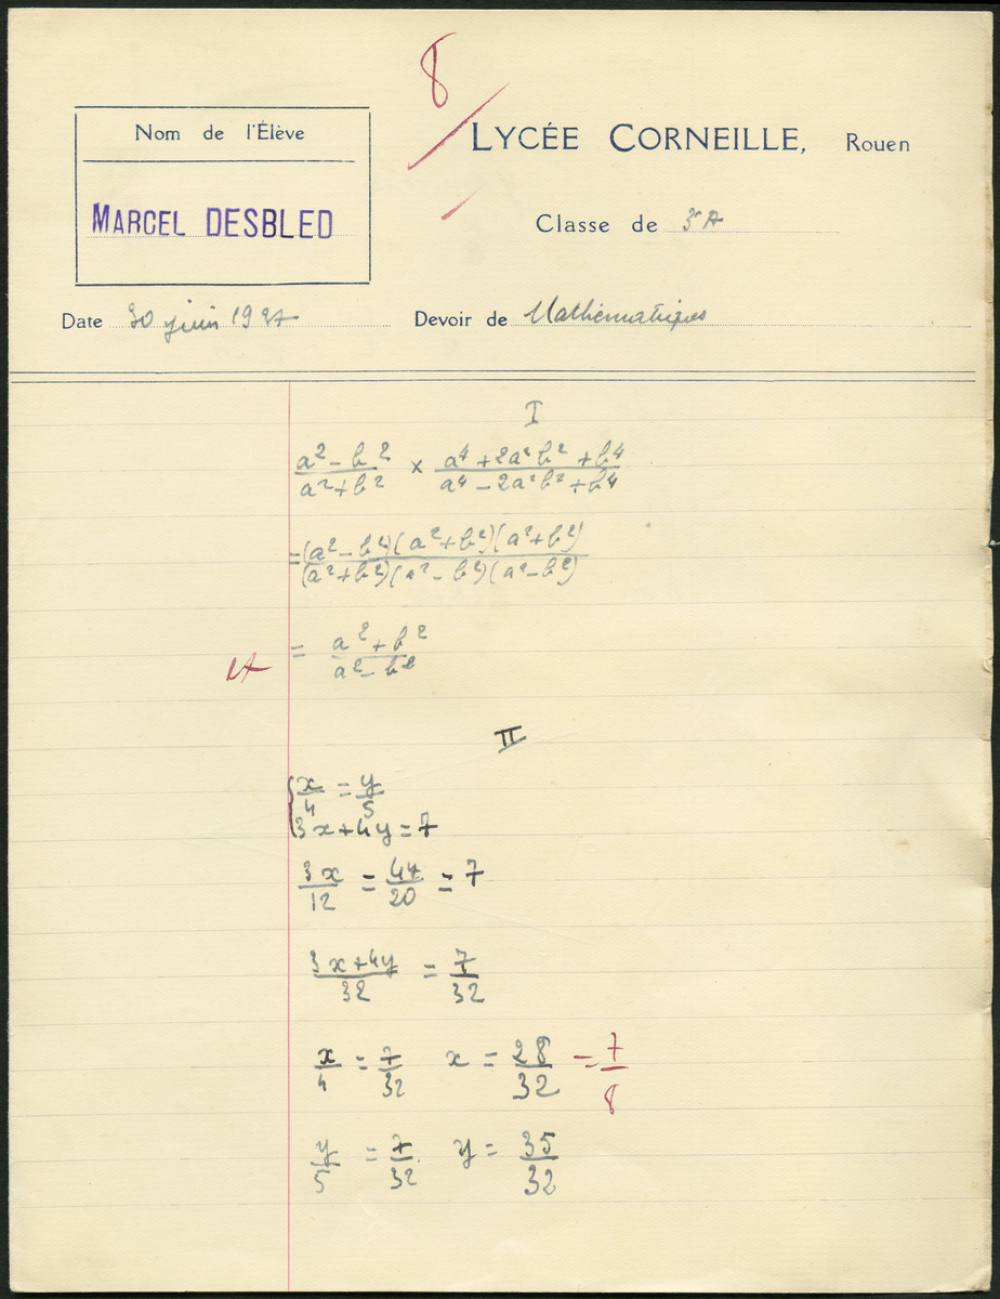 8
Nom de l'Élève
LYCÉE CORNEILLE, Rouen
MARCEL DESBLED
Classe de 3e A
Date 30 juin 1937
Devoir de Mathématiques
I
(a² - b²)/(a² + b²) × (a⁴ + 2a²b² + b⁴)/(a⁴ - 2a²b² + b⁴)
= (a² - b²)(a² + b²)(a² + b²)/(a² + b²)(a² - b²)(a² - b²)
= (a² + b²)/(a² - b²)
II
x/4 = y/5
3x + 4y = 7
3x/12 = 4y/20 = 7
(3x + 4y)/32 = 7/32
x/4 = 7/32 x = 28/32 = 7/8
y/5 = 7/32 y = 35/32